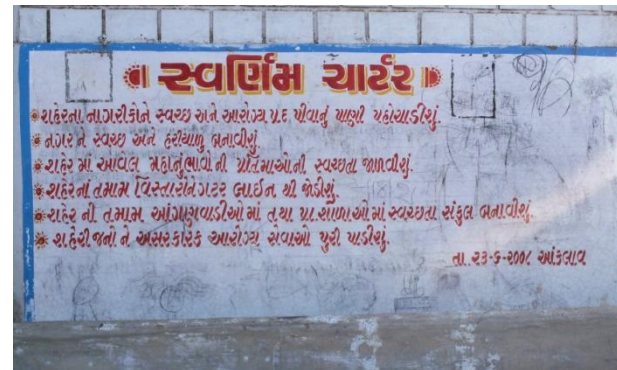 સ્વર્ણિમ ચાર્ટર
શહેરના નાગરીકોને સ્વચ્છ અને આરોગ્ય પ્રદ પીવાનું પાણી પહોચાડીશું.
નગર ને સ્વચ્છ અને હરીયાળુ બનાવીશું
શહેર માં આવેલ મહાનુંભાવો ની પ્રતિમાઓ.ની સ્વચ્છતા જાળવીશું.
શહેરનાં તમામ વિસ્તારોને ગટર લાઈન થી જોડીશું.
શહેર ની તમામ આંગાણવાડીઓ માં તથા પ્રા.શાળાઓ માં સ્વચ્છતા સંકુલ બનાવીશું.
શહેરીજનો ને અસરકારક આરોગ્ય સેવાઓ પુરી પાડીશું.
તા..૨૩-૬-૨૦૦૮ આંકલાવ